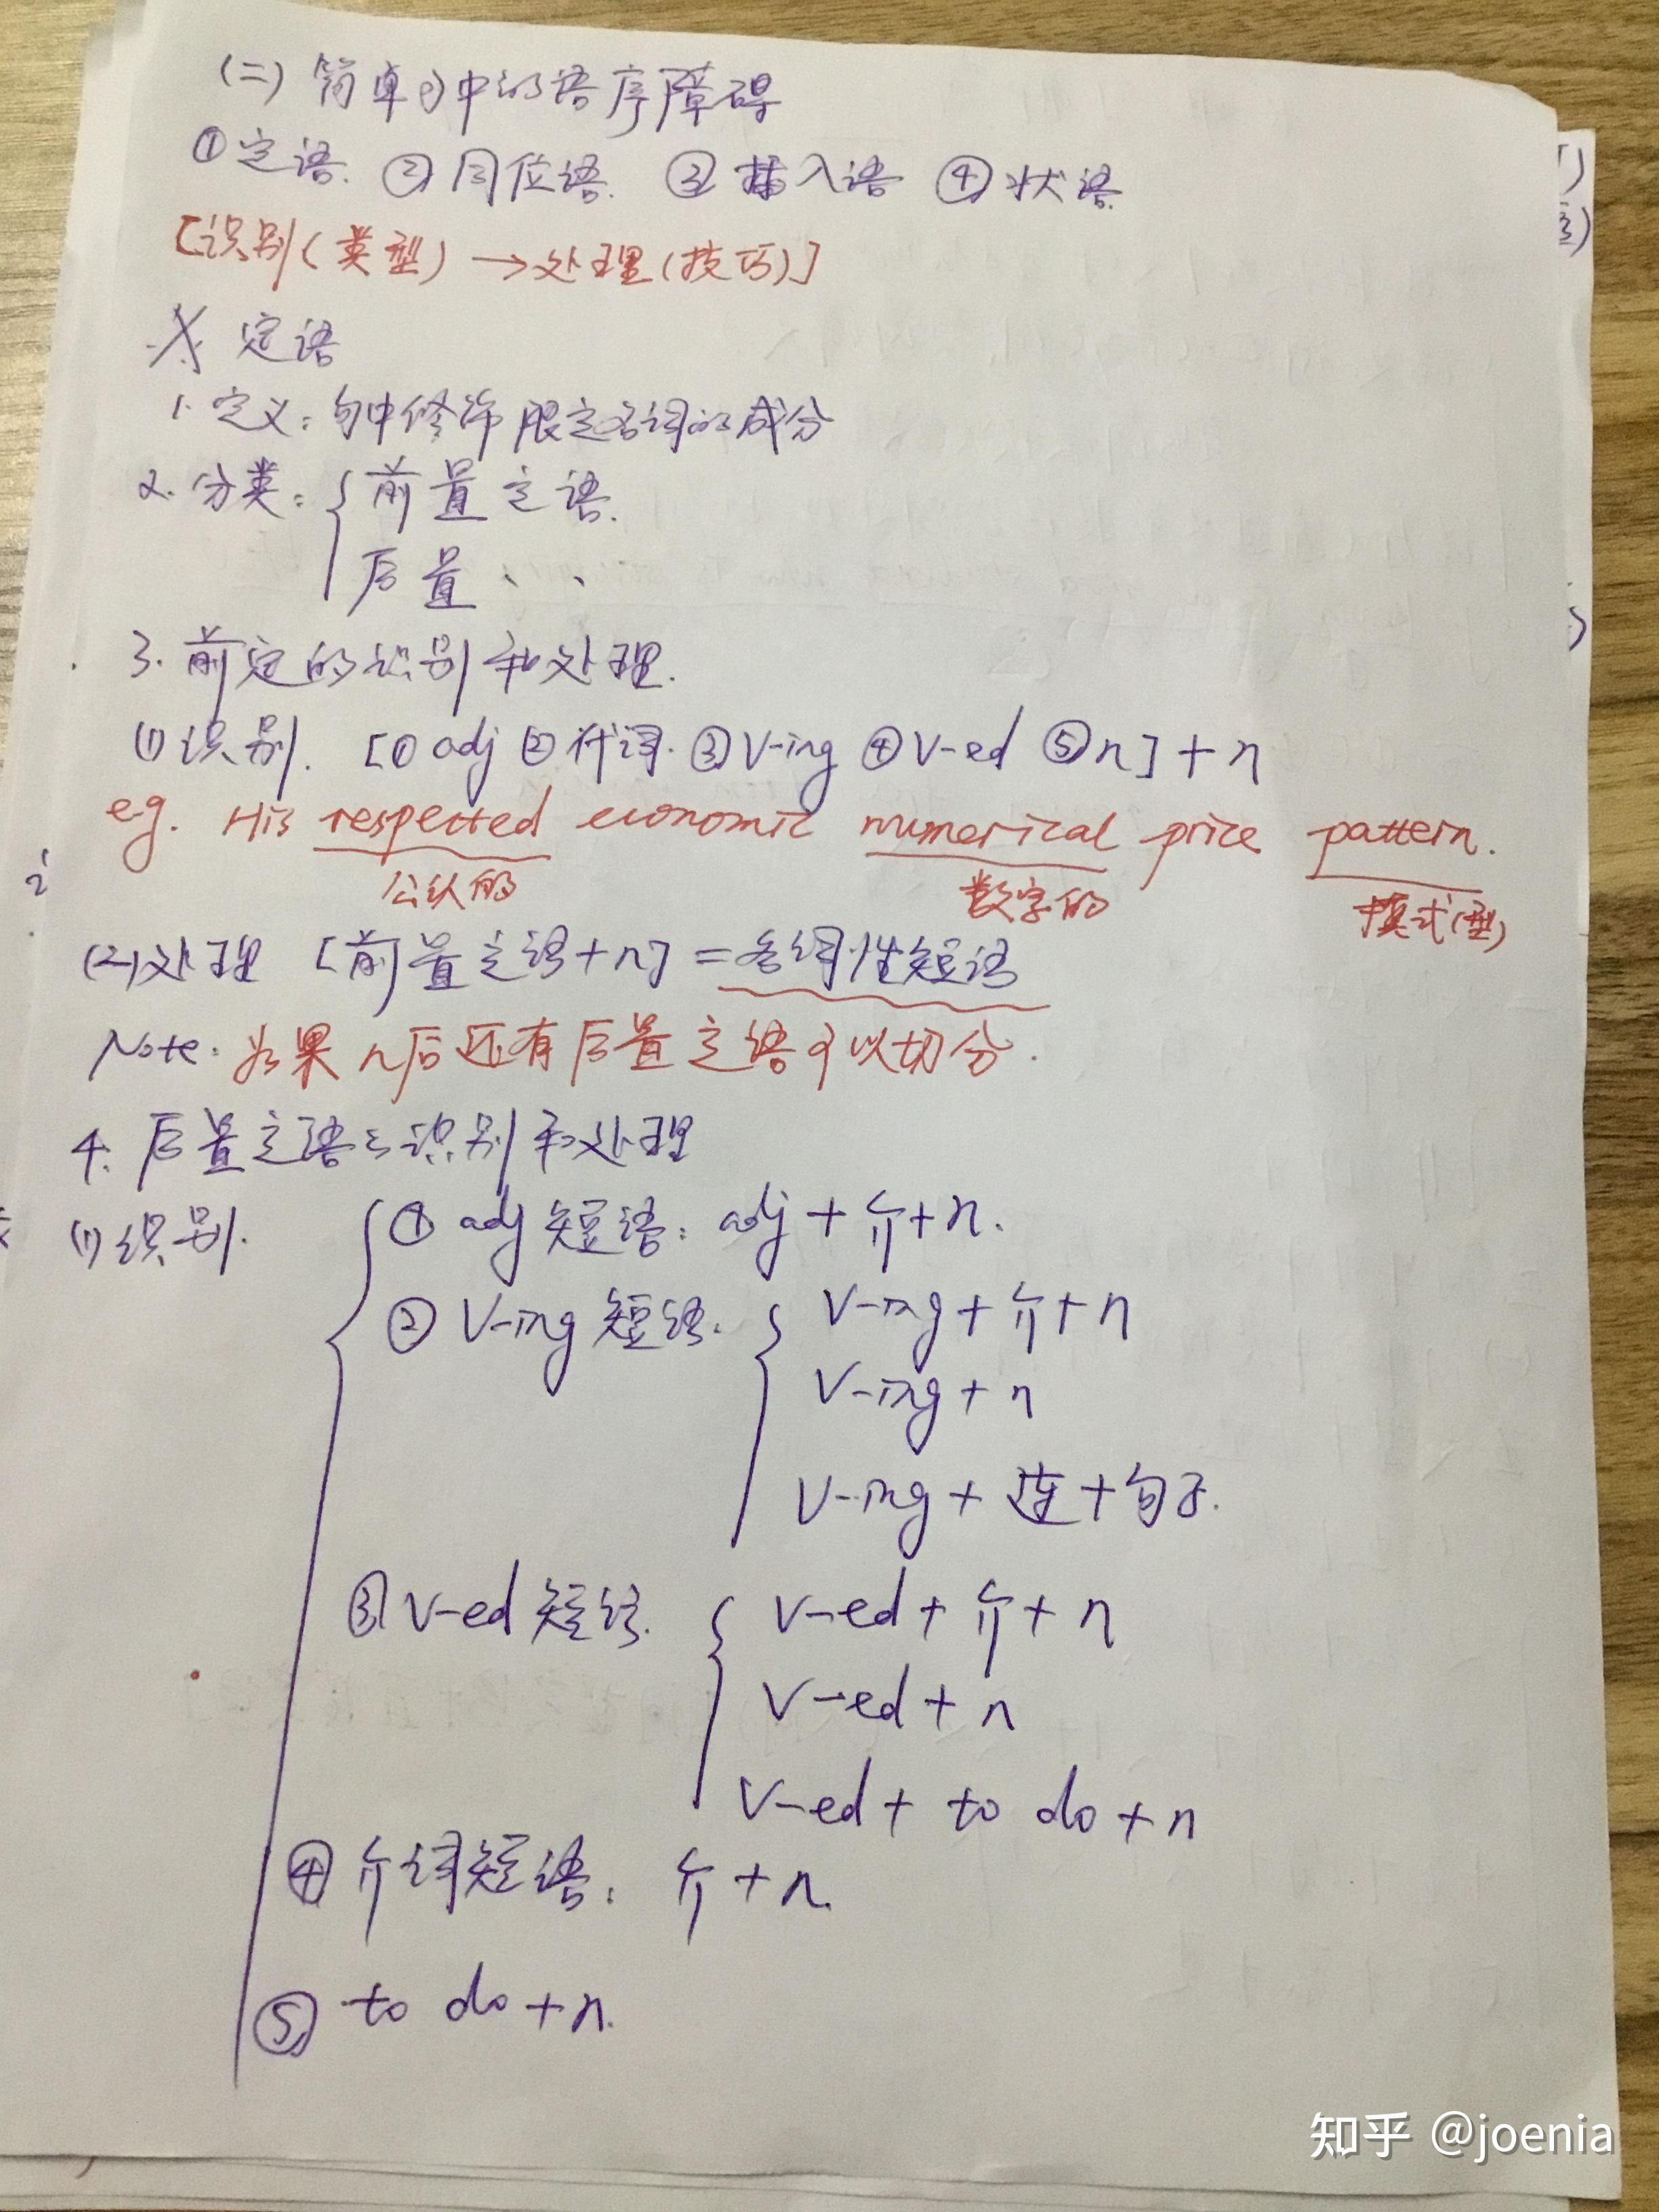 (二) 简单句中的语序障碍
①定语. ②同位语. ③插入语 ④状语.
[识别(类型) → 处理(技巧)]
定语
1. 定义: 句中修饰限定名词的成分
2. 分类: 前置定语.
后置 、 、
3. 前定的识别和处理.
(1) 识别. [① adj ② 代词. ③ V-ing ④ V-ed ⑤ n] + n
e.g. His respected economic numerical price pattern.
公认的 数字的 模式(型)
(2) 处理 [前置定语+n] = 名词性短语
Note: 如果n后还有后置定语可以切分.
4. 后置定语之识别和处理
(1) 识别. ① adj 短语: adj + 介 + n.
② V-ing 短语. V-ing + 介 + n
V-ing + n
V-ing + 连 + 句子.
③ V-ed 短语. V-ed + 介 + n
V-ed + n
V-ed + to do + n
④ 介词短语: 介 + n.
⑤ to do + n.
知乎 @joenia